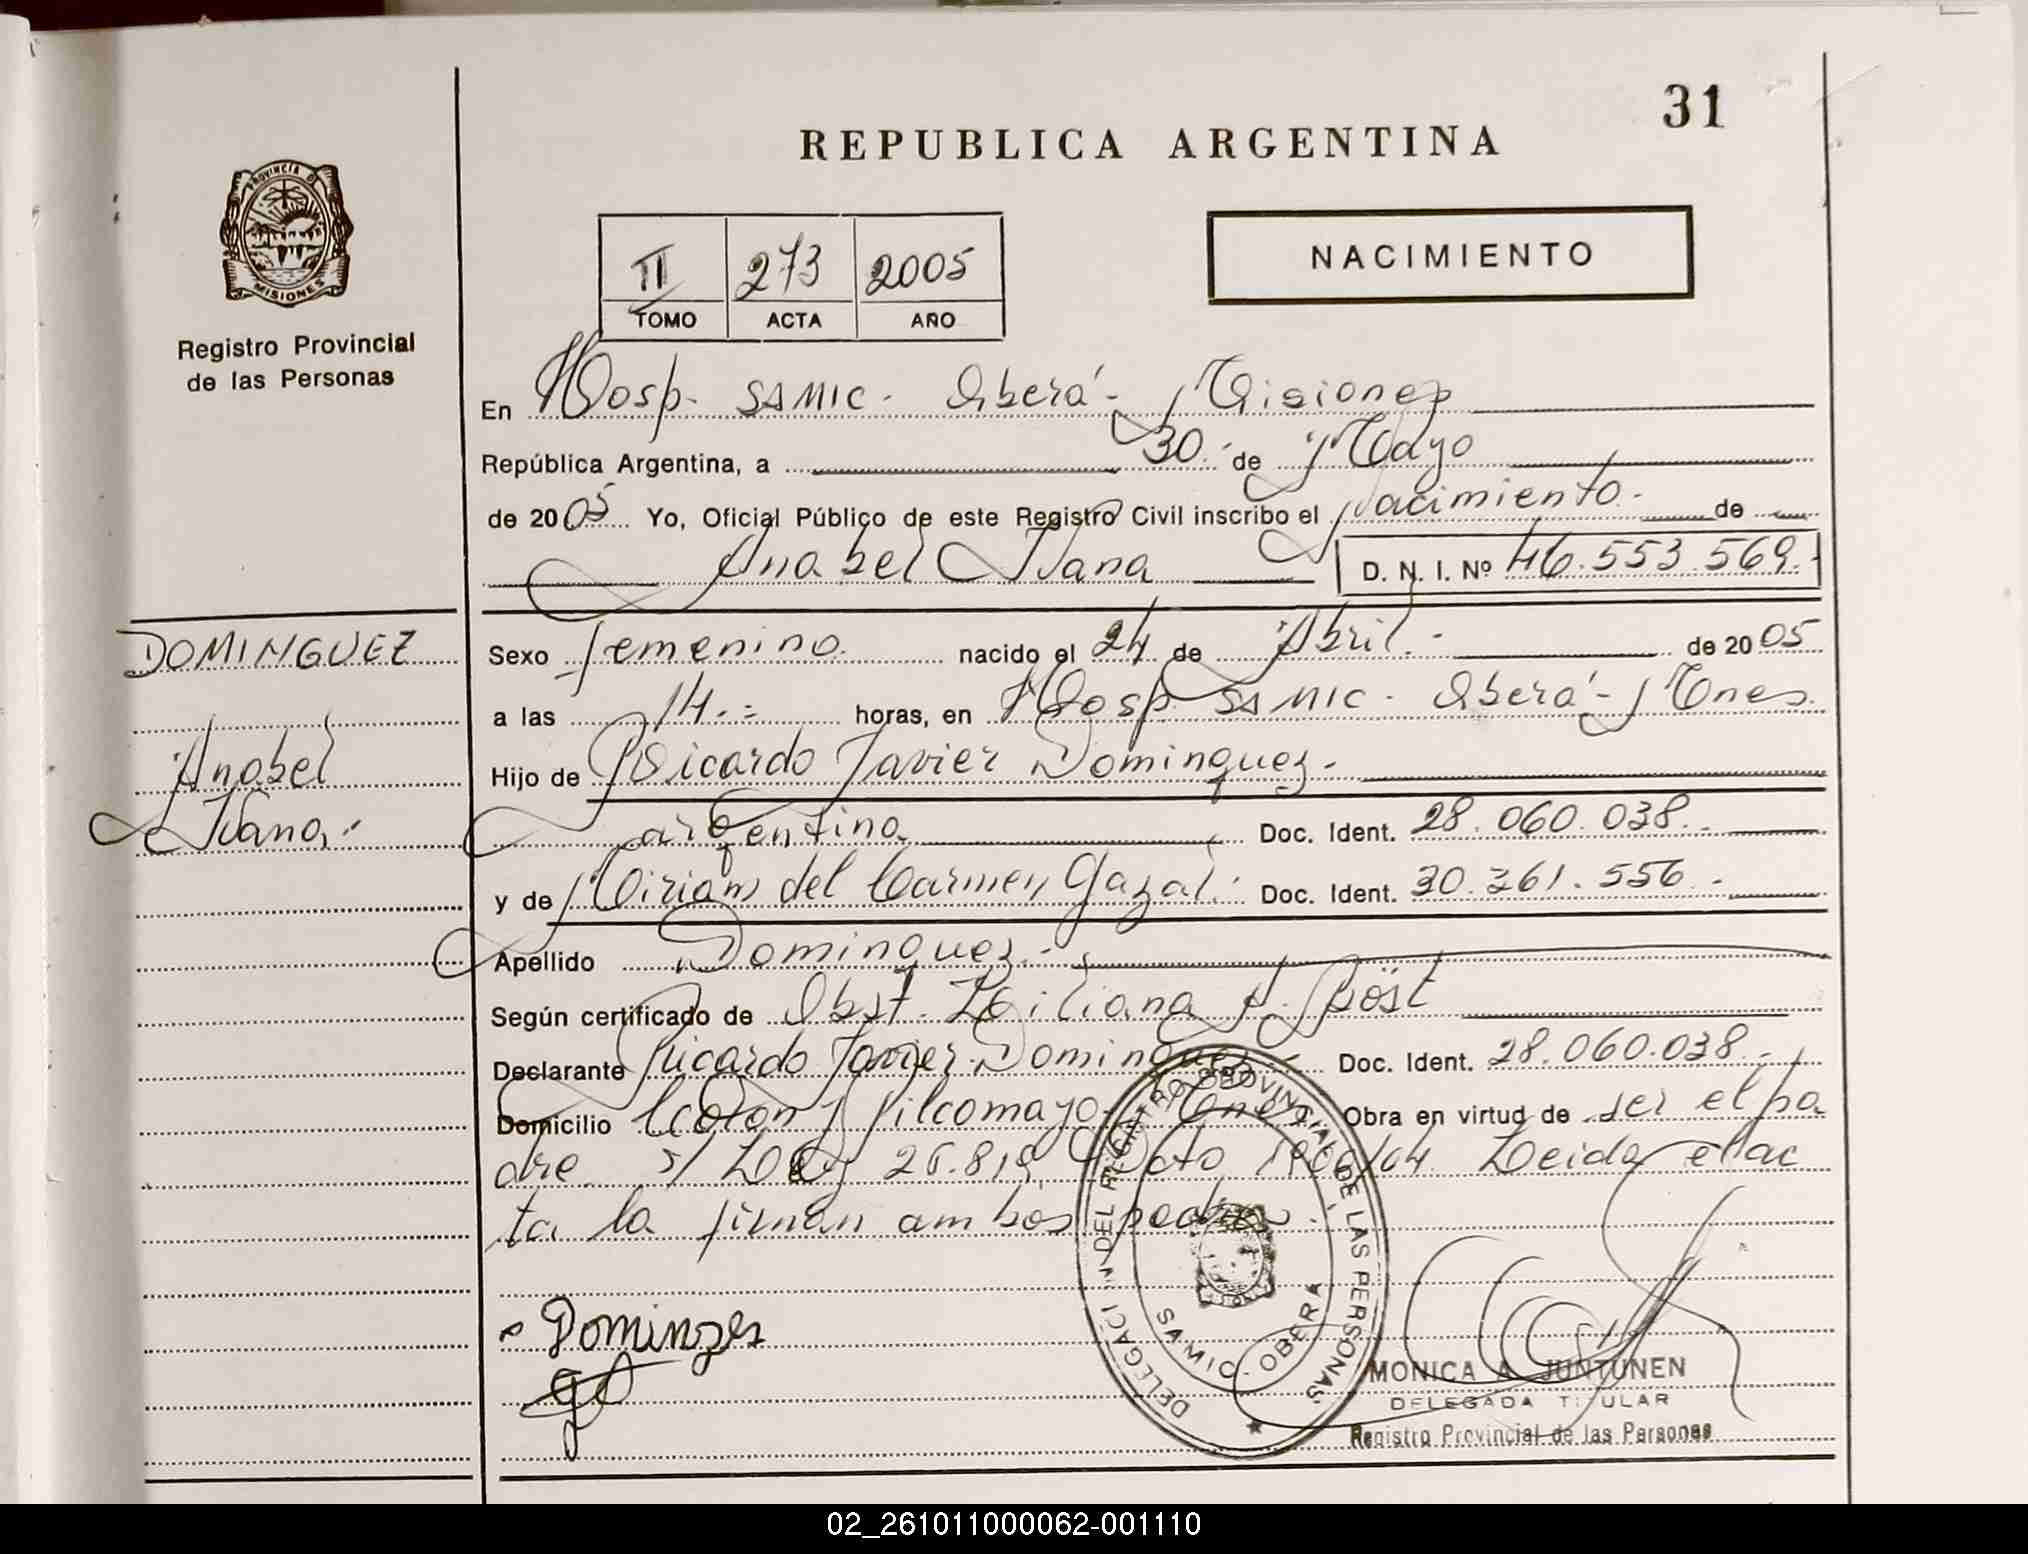 31
REPUBLICA ARGENTINA
PROVINCIA D
MISIONES
Registro Provincial
de las Personas
NACIMIENTO
II 273 2005
TOMO ACTA AÑO
En Hosp. SAMIC. Oberá - Misiones
República Argentina, a 30 de Mayo
de 2005 Yo, Oficial Público de este Registro Civil inscribo el Nacimiento. de
Anabel Ivana D. N. I. Nº 46.553.569.-
DOMINGUEZ
Anabel
Ivana.-
Sexo femenino. nacido el 24 de Abril.- de 2005
a las 14.= horas, en Hosp SAMIC. Oberá - Mnes.
Hijo de Ricardo Javier Dominguez.-
argentino Doc. Ident. 28.060.038.-
y de Miriam del Carmen Gazal. Doc. Ident. 30.361.556.-
Apellido Dominguez.-
Según certificado de Obst. Liliana Spöst
Declarante Ricardo Javier Dominguez Doc. Ident. 28.060.038.-
Domicilio Colon y Pilcomayo. Mnes Obra en virtud de ser el pa
dre. s/ Ley 25.819 Dcto 1906/04. Leida el ac
ta la firman ambos padres.
Dominges
DELEGACI N DEL REGISTRO PROVINCIAL DE LAS PERSONAS
SAMIC. OBERA
MONICA A. JUNTUNEN
DELEGADA TITULAR
Registro Provincial de las Personas
02_261011000062-001110